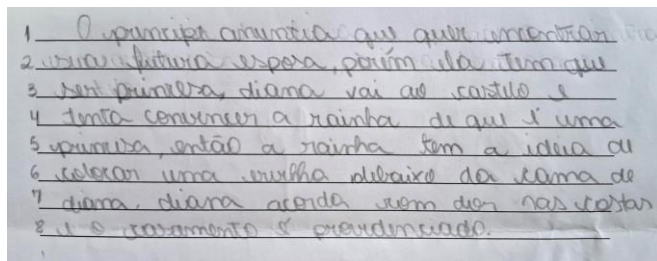 1 O principe anuncia que quer encontrar
2 sua futura esposa, porém ela tem que
3 ser princesa, diana vai ao castelo e
4 tenta convencer a rainha de que é uma
5 princesa, então a rainha tem a ideia de
6 colocar uma ervilha debaixo da cama de
7 diana. diana acorda com dor nas costas
8 e o casamento é providenciado.